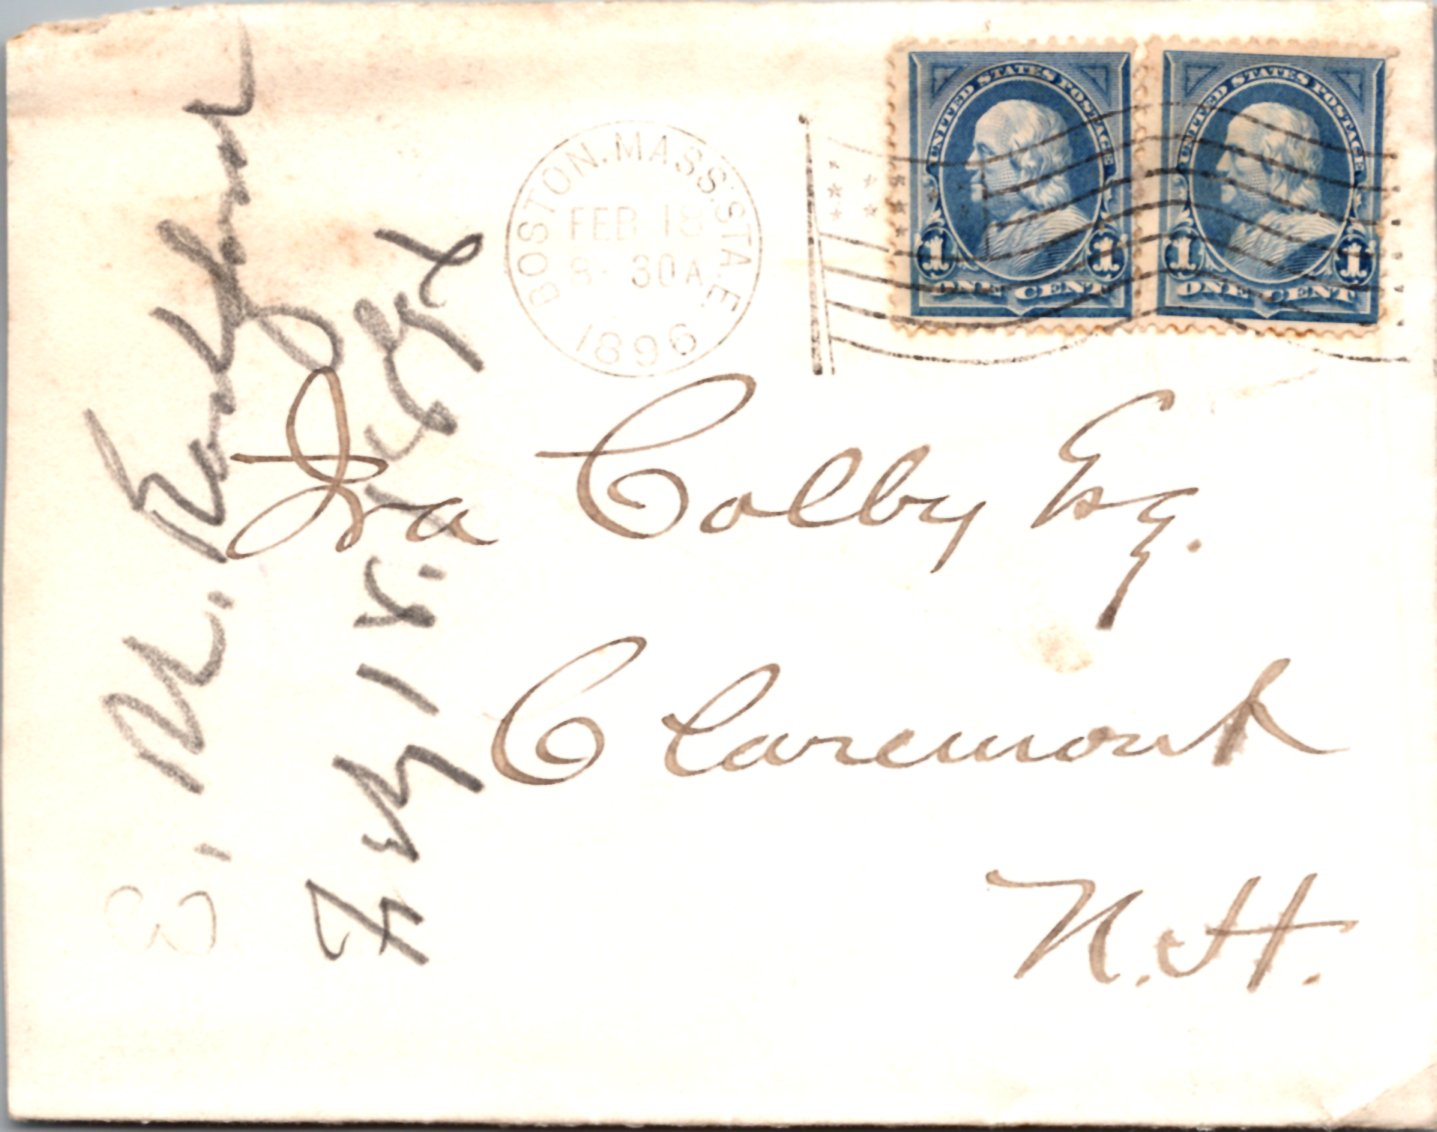 BOSTON. MASS. STA. E.
FEB 18
8-30A
1896
UNITED STATES POSTAGE
1 1
ONE CENT
UNITED STATES POSTAGE
1 1
ONE CENT
Ira Colby Esq.
Claremont
N.H.
E. M.
Feby 18. 1896